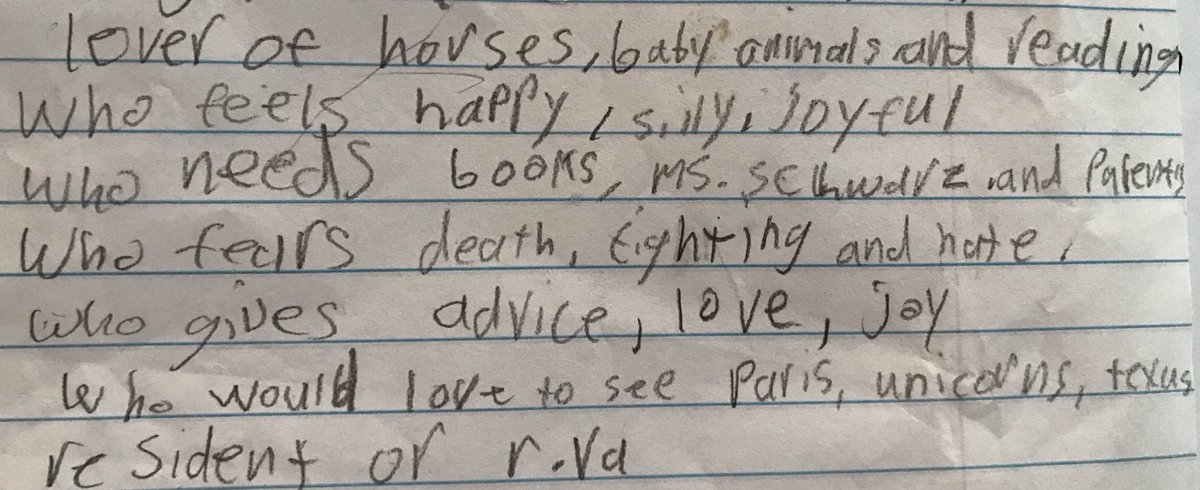 lover of horses, baby animals and reading
who feels happy, silly, joyful
who needs books, ms. schwarz and Parents
who fears death, fighting and hate,
who gives advice, love, joy
who would love to see Paris, unicorns, texas
resident of r.va